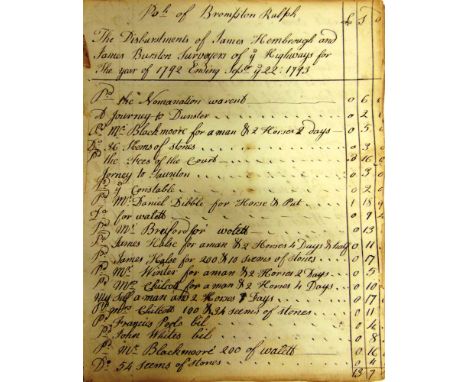 Poh. of Brompton Ralph
£ S D
The Disbursments of James Hembrough and
James Burston Surveyors of ye Highways for
The year of 1792 Ending Septr. ye 22: 1793
Pd the Nomanation warent 0 6
A Journey to Dunster 0 2
Pd Mr Blackmoore for a man & 2 Horses 2 days 0 5
Do 36 Seems of stones 0 3
Pd the Fees of the Court 0 16
Jorney to Taunton 0 3
Pd ye Constable 0 2
Pd Mr Daniel Dibble for Horse & Put 1 18
Do for waletts 0 9
Pd Mr Breiford for woletts 0 13
Pd James Halse for a man & 2 Horses 4 Days & half 0 11
Pd James Halse for 200 & 10 seems of stones 0 17
Pd Mr Winter for a man & 2 Horses 2 Days 0 5
Pd Mr Chilcott for a man & 2 Horses 4 Days 0 10
My Self a man and 2 Horses 7 Days 0 17
Pd Mrs Chilcott 100 & 34 seems of stones 0 11
Pd Francis Pools bil 0 4
Pd John Whites bil 0 8
Pd Mr Blackmoore 200 of waletts 0 16
Do 54 seems of stones 0 4
13 7